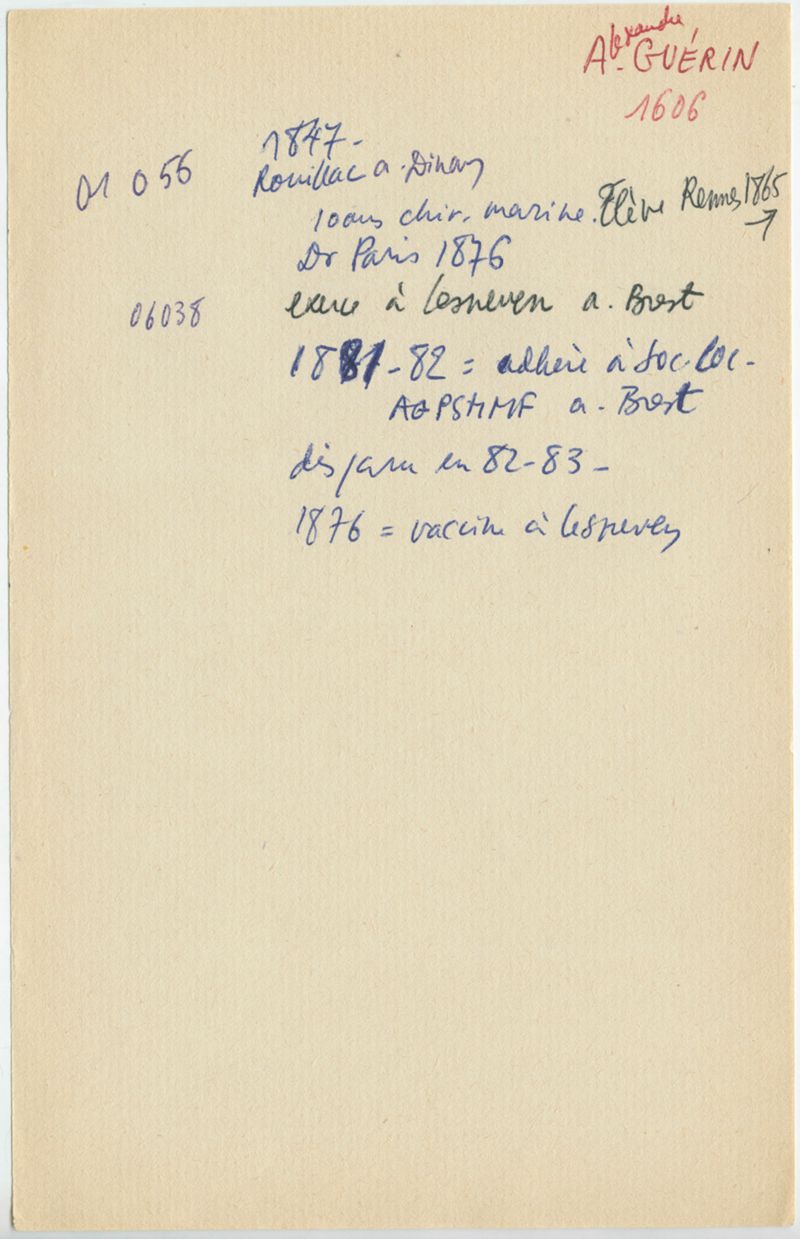 Alexandre
A. GUÉRIN
1606
1847-
01 056
Rouillac a. Dinan
10 ans chir. marine. Élève Rennes 1865
Dr Paris 1876
06038
exerce à Lesneven a. Brest
1881-82 = adhère à Soc. loc.
AGPSMMF a. Brest
disparu en 82-83 -
1876 = vaccine à Lesneven